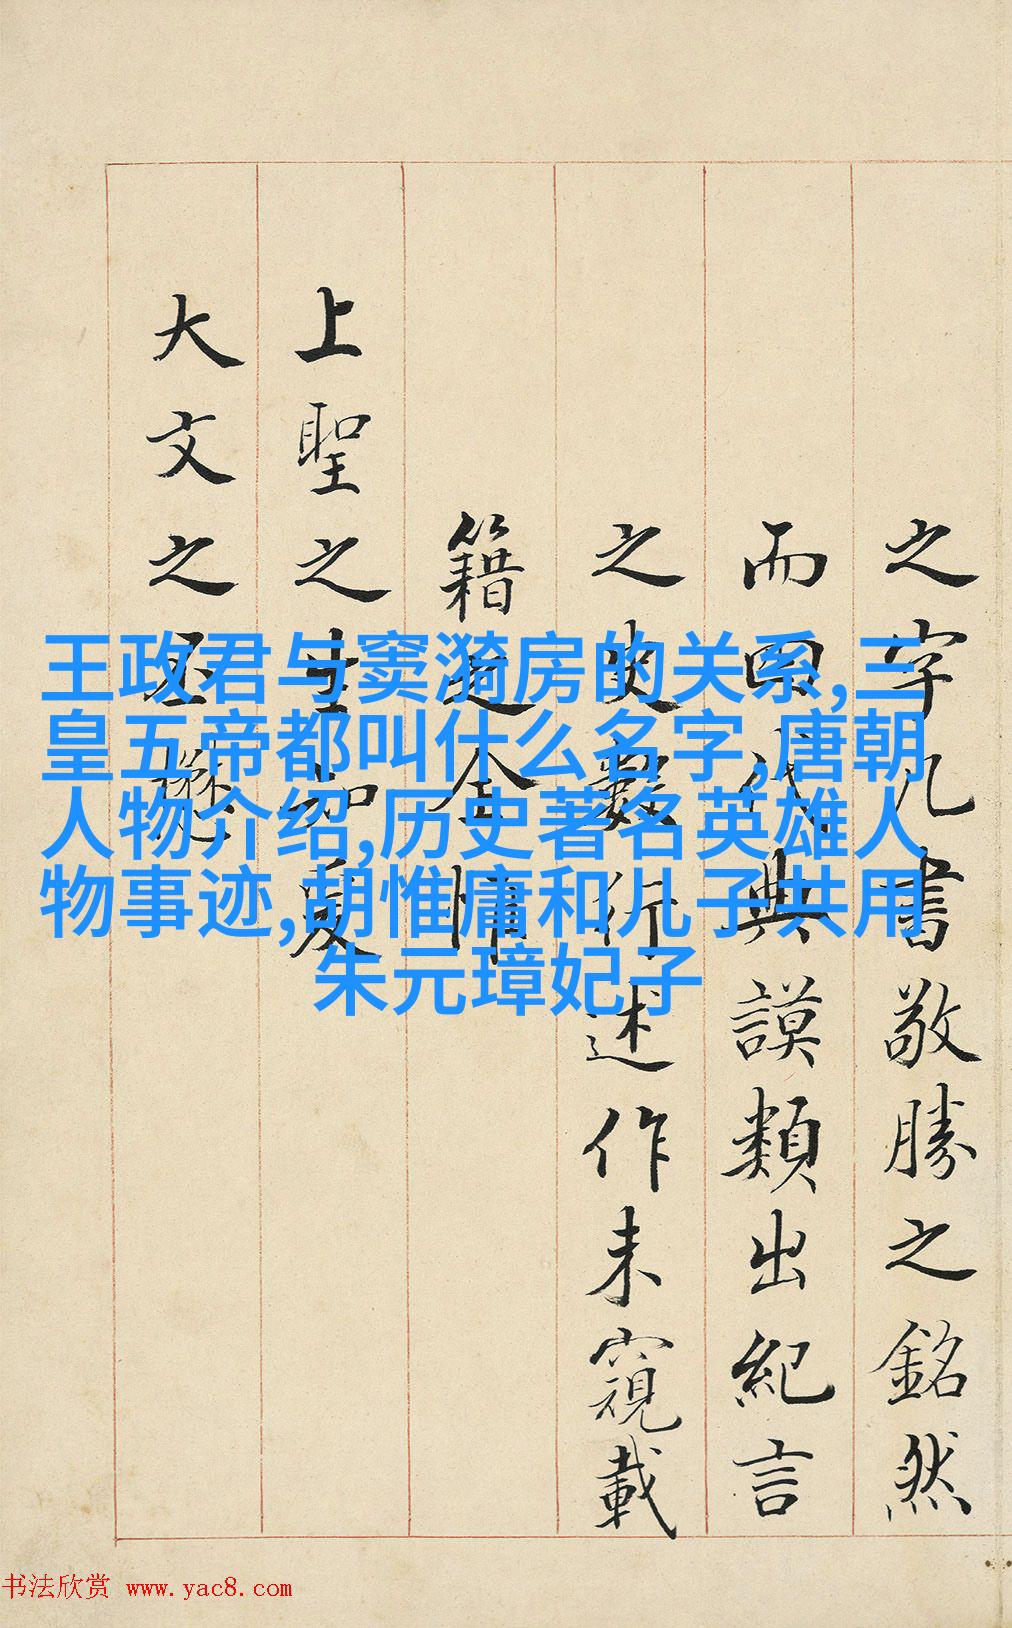 王政君与窦漪房的关系,三
皇五帝都叫什么名字,唐朝
人物介绍,历史著名英雄人
物事迹,胡惟庸和儿子共用
朱元璋妃子
之字凡書敬勝之銘然
而四代典謨類出紀言
之史數行述作未窺載
籍之全惟
上聖之生知夏
大文之丕
书法欣赏 www.yac8.com